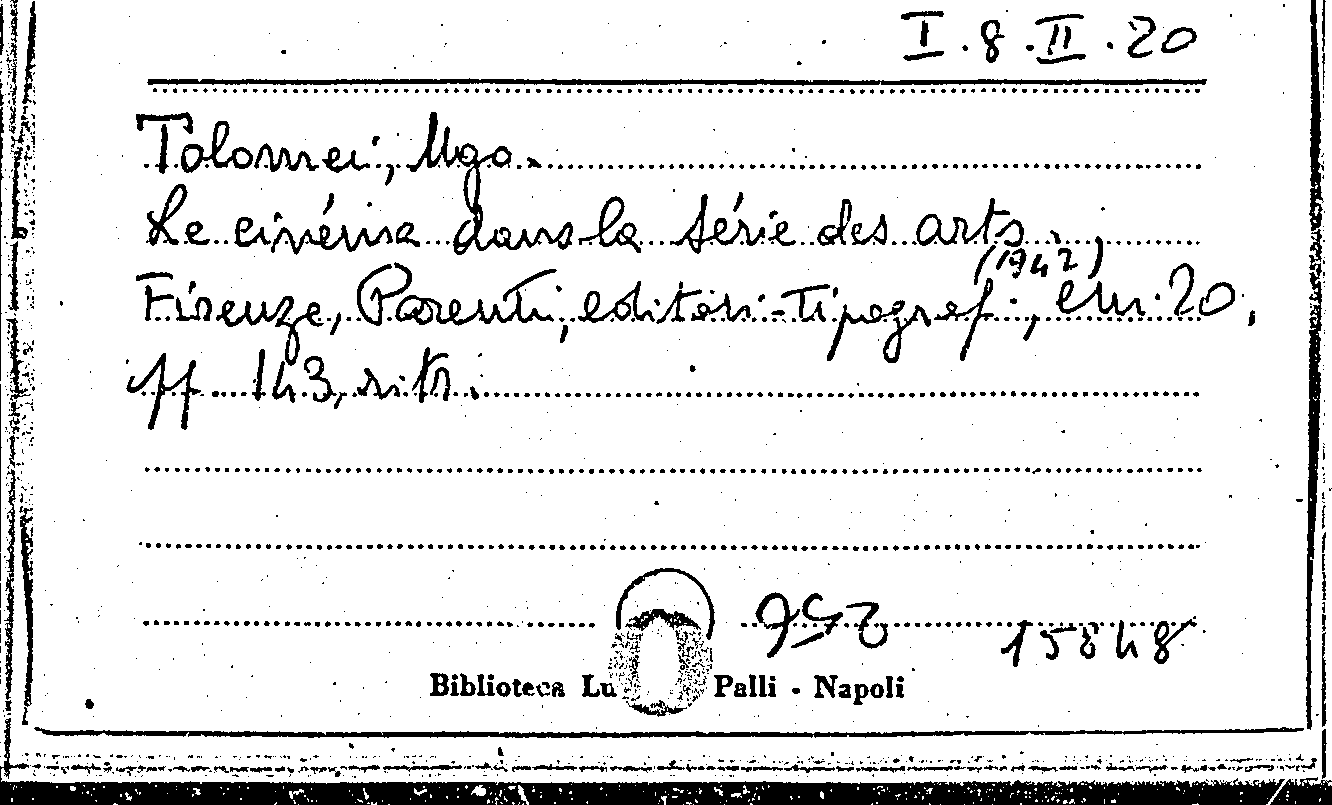 I.8.II.20
Tolomei, Ugo.
Le cinéma dans la série des arts.
(1942)
Firenze, Parenti, editori-tipograf., cm. 20,
pp. 143, ritr.
256
15848
Biblioteca Lu Palli - Napoli